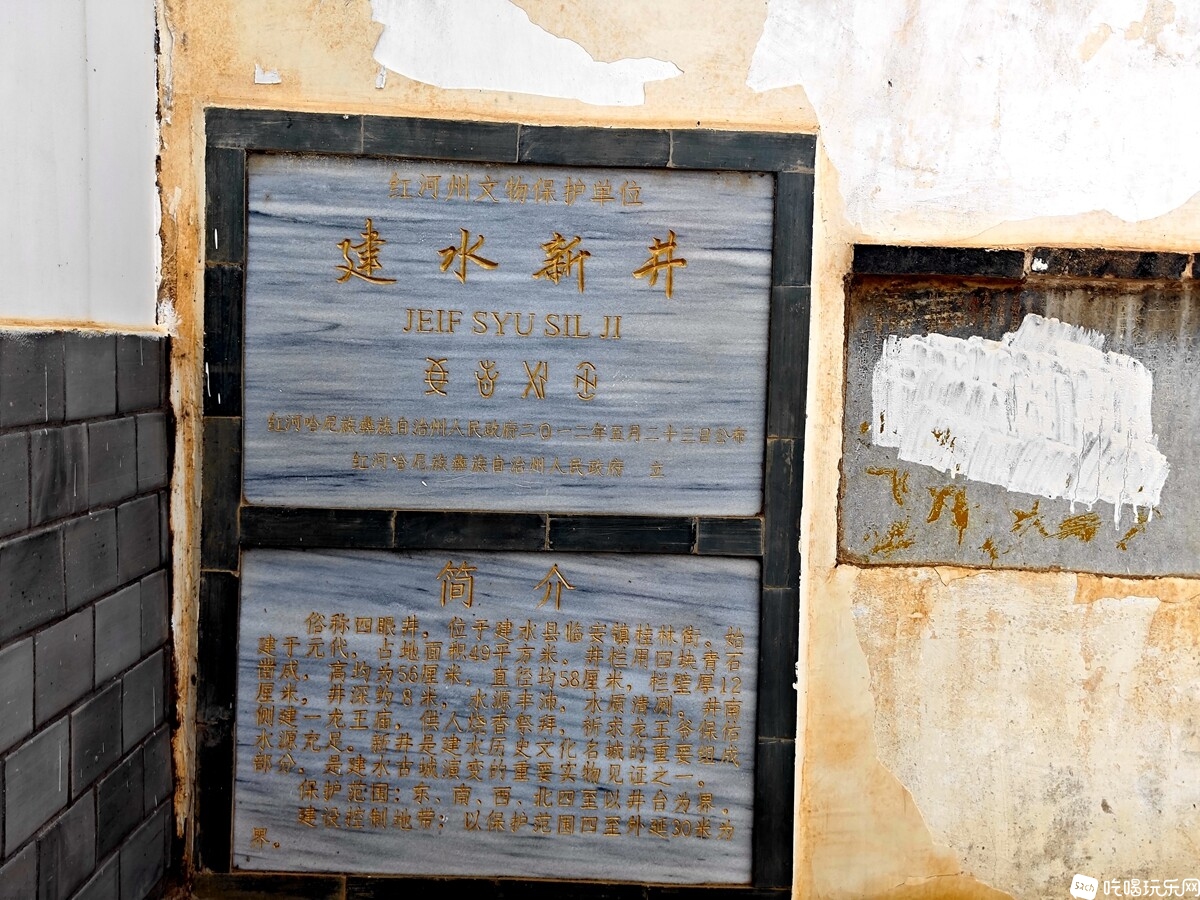 红河州文物保护单位
建水新井
JEIF SYU SIL JI
红河哈尼族彝族自治州人民政府二〇一二年五月二十三日公布
红河哈尼族彝族自治州人民政府 立
简介
俗称四眼井，位于建水县临安镇桂林街。始
建于元代，占地面积49平方米。井栏用四块青石
凿成，高均为56厘米，直径均58厘米，栏壁厚12
厘米，井深约8米，水源丰沛，水质清冽。井南
侧建一龙王庙，供人烧香祭拜，祈求龙王爷保佑
水源充足。新井是建水历史文化名城的重要组成
部分，是建水古城演变的重要实物见证之一。
保护范围：东、南、西、北四至以井台为界。
建设控制地带：以保护范围四至外延30米为
界。
吃喝玩乐网